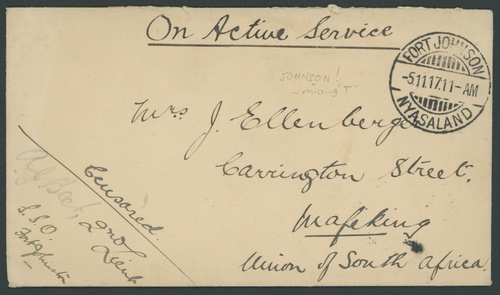 On Active Service
FORT JOHNSON
-5 11.17.11-AM
NYASALAND
JOHNSON!
missing "T"
Mrs J. Ellenberger
Carrington Street.
Mafeking
Union of South Africa.
Censored.
2nd Lieut
S.S.O.
Fort Johnston